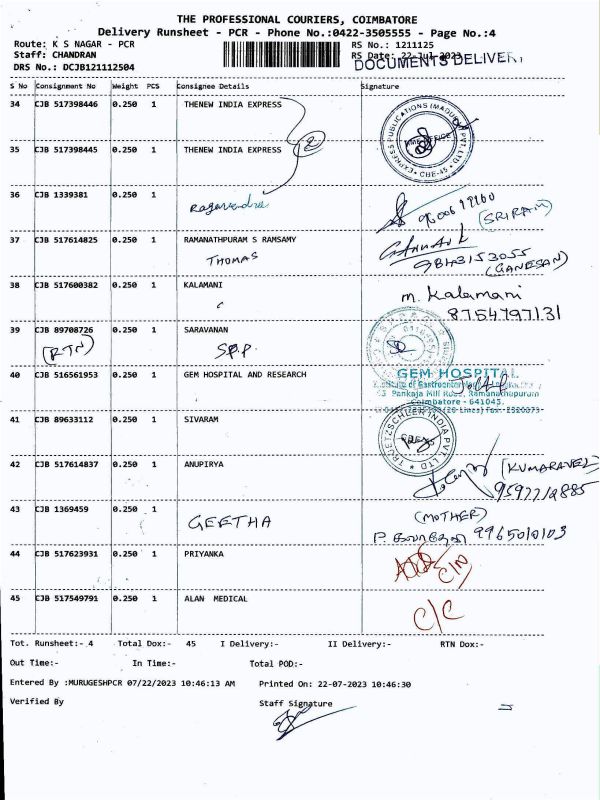 THE PROFESSIONAL COURIERS, COIMBATORE
Delivery Runsheet - PCR - Phone No.:0422-3505555 - Page No.:4
Route: K S NAGAR - PCR RS No.: 1211125
Staff: CHANDRAN RS Date: 22-Jul-2023
DRS No.: DCJB121112504 DOCUMENTS DELIVER
S No Consignment No Weight PCS Consignee Details Signature
34 CJB 517398446 0.250 1 THENEW INDIA EXPRESS
35 CJB 517398445 0.250 1 THENEW INDIA EXPRESS 2
CHE-45
36 CJB 1339381 0.250 1 Ragavendra
(SRIRAM)
37 CJB 517614825 0.250 1 RAMANATHPURAM S RAMSAMY
THOMAS 9843153055
(GANESAN)
38 CJB 517600382 0.250 1 KALAMANI m. Kalamani
8754797131
39 CJB 89708726 0.250 1 SARAVANAN
(RTN) S.P.P.
40 CJB 516561953 0.250 1 GEM HOSPITAL AND RESEARCH GEM HOSPITAL
45 Pankaja Mill Road, Ramanathapuram
Coimbatore - 641045.
41 CJB 89633112 0.250 1 SIVARAM TRUETZSCHLER INDIA PVT. LTD
42 CJB 517614837 0.250 1 ANUPIRYA (KUMARAVEL)
43 CJB 1369459 0.250 1 GEETHA (MOTHER)
44 CJB 517623931 0.250 1 PRIYANKA
45 CJB 517549791 0.250 1 ALAN MEDICAL C/C
Tot. Runsheet:- 4 Total Dox:- 45 I Delivery:- II Delivery:- RTN Dox:-
Out Time:- In Time:- Total POD:-
Entered By :MURUGESHPCR 07/22/2023 10:46:13 AM Printed On: 22-07-2023 10:46:30
Verified By Staff Signature